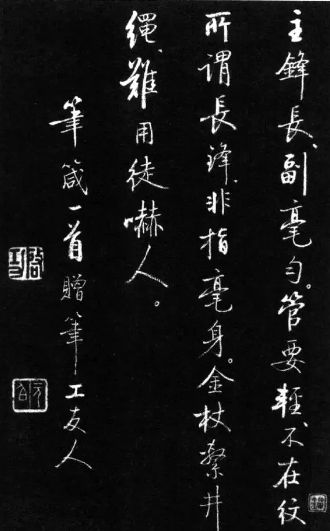 主鋒長、副毫勻。管要輕、不在紋
所謂長鋒、非指毫身。金杖繫井
繩、難用徒嚇人。
筆箴一首贈筆工友人